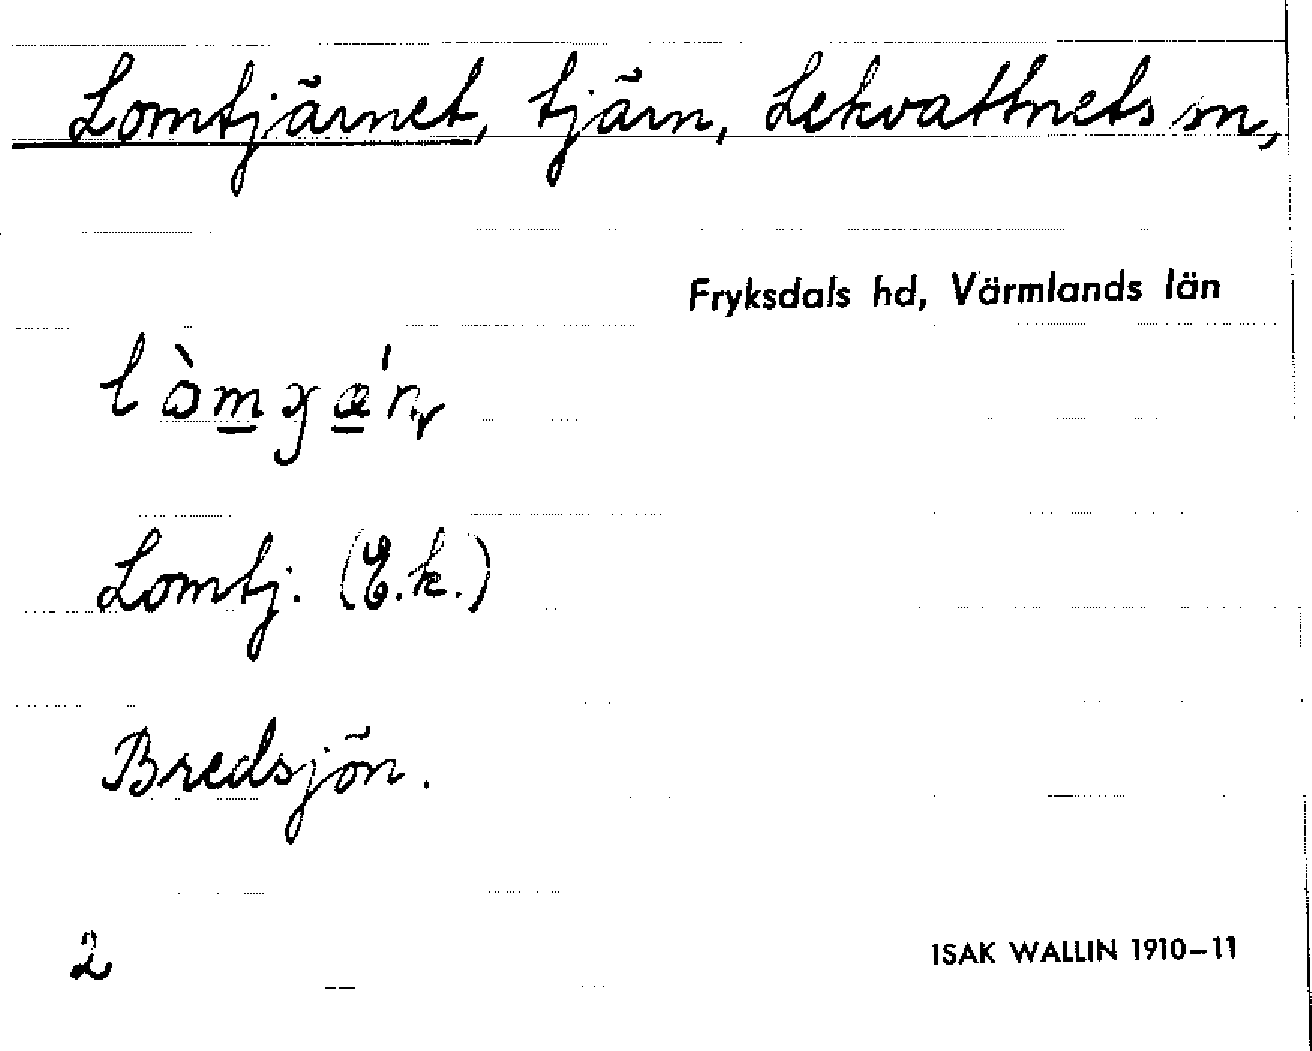 Lomtjärnet, tjärn, Lekvattnets sn,
Fryksdals hd, Värmlands län
Lomtj. (E.k.)
Bredsjön.
2
ISAK WALLIN 1910–11